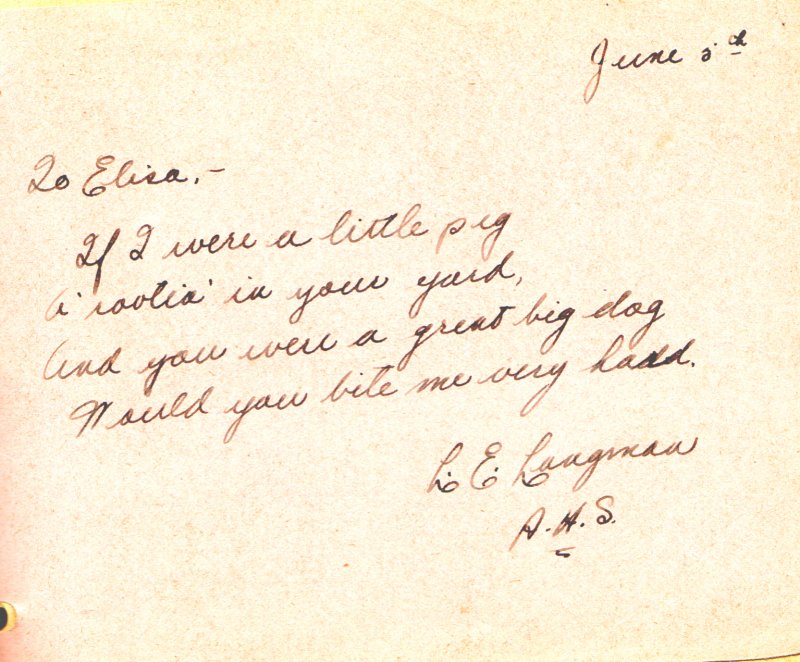 June 5th
To Elisa,-
If I were a little pig
A' rootin' in your yard,
And you were a great big dog
Would you bite me very hadd.
L. E. Langman
A. H. S.